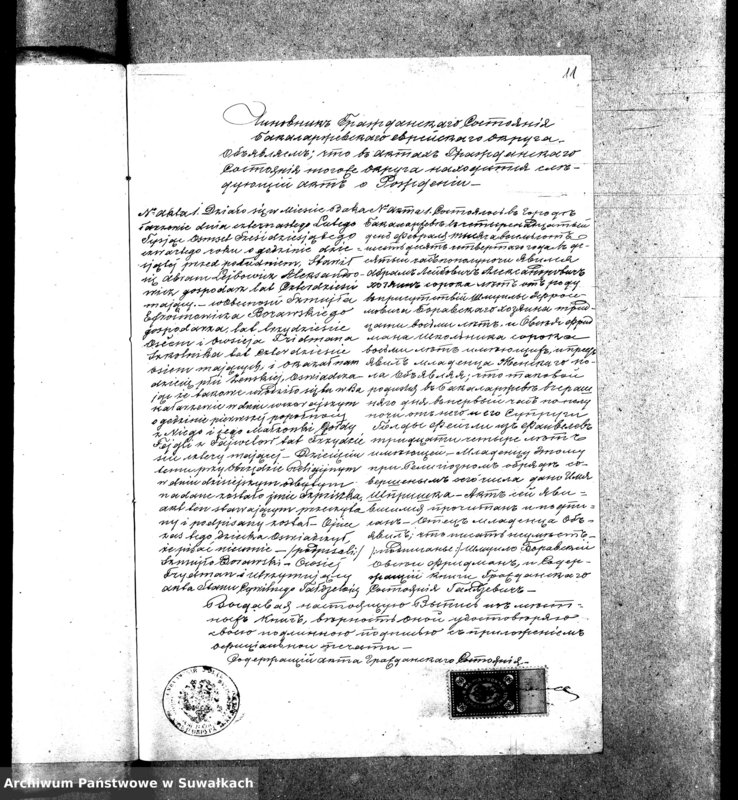 11
Чиновникъ Гражданскаго Состоянія
Бакаларжевскаго еврейскаго округа
Объявляемъ; что въ актахъ Гражданскаго
Состоянія тогоже округа находится слѣ-
дующій актъ о Рожденіи
N akta 1. Działo się w Mieście Baka
łarzewie dnia czternastego Lutego
Tysiąc Ośmset Sześćdziesiątego
czwartego roku o godzinie dzie-
siątej przed południem, Stawił
się Abram Lejbowicz Aleksandro-
wicz gospodarz lat Czterdzieści
mający, w Obecności Szmujły
Borawskiego
gospodarza lat trzydzieście
Ośm i Owsieja Fridmana
Szkolnika lat Czterdzieście
ośm mających, i okazał nam
dziecię płci Żeńskiej, Oświadcza
jąc że takowe urodziło się tu w Ba
kałarzewie w dniu wczorajszym
o godzinie pierwszej popołudniu
z Niego i jego Małżonki Gołdy
Fejgli z Fajwelów lat trzydzie
ście cztery mającej. Dziecięciu
temu przy Obrzędzie Religijnym
w dniu dzisiejszym odbytym
nadane zostało imie Szpryszka,
akt ten stawającym przeczyta
ny i podpisany został. Ojciec
zaś tego Dziecka Oświadczył
iż pisać nieumie. /podpisali/
Szmujło Borawski. Owsiej
Frydman i Utrzymujący
Akta Stanu Cywilnego
N акта 1. Состоялось въ городѣ
Бакаларжевѣ четырнадцатый
дня февраля тысяча восемьсотъ
шестьдесятъ четвертаго года въ де-
сятый часъ пополуночи явился
Абрамъ Лейбовичъ Александровичъ
хозяинъ сорока лѣтъ отъ роду
въ присутствіи Шмуилы
Боравскаго хозяина трид-
цати восьми лѣтъ и Овсея Фрид
мана Школьника сорока
восьми лѣтъ имѣющихъ, и предъ
явилъ младенца женскаго по-
ла объявляя; что таковой
родился въ Бакаларжевѣ вчераш
няго дня въ первый часъ пополу
ночи отъ него и его Супруги
Голды Фейгли изъ Файвеловъ
тридцати четыре лѣтъ
имѣющей. Младенцу этому
при Религіозномъ обрядѣ со-
вершенномъ сего числа дано имя
Шпришка. Актъ сей яви-
вшимся прочитанъ и подпи-
санъ. Отецъ младенца Объ-
явилъ; что писать неумѣетъ.
/подписалъ/ Шмуйло Боравскій
Овсей Фридманъ, и Содер-
жащій книги Гражданскаго
Состоянія
Выдавая настоящую Выпись изъ мѣст-
ныхъ Книгъ, вѣрность оной удостовѣряю
своею подлинною подписью съ приложеніемъ
оффиціальной печати.
Содержащій акта Гражданскаго Состоянія
Archiwum Państwowe w Suwałkach